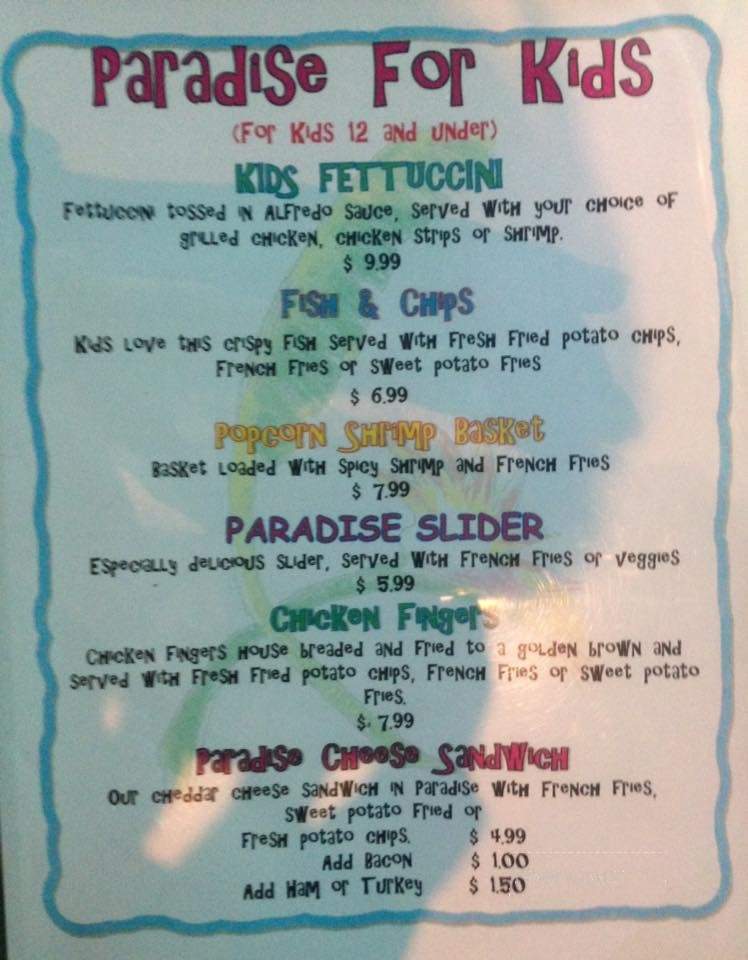 Paradise For Kids
(For Kids 12 and under)
KIDS FETTUCCINI
Fettuccini tossed in Alfredo sauce, served with your choice of
grilled chicken, chicken strips or shrimp.
$ 9.99
Fish & Chips
Kids love this crispy fish served with fresh fried potato chips,
French fries or sweet potato fries
$ 6.99
Popcorn Shrimp Basket
Basket loaded with spicy shrimp and French fries
$ 7.99
PARADISE SLIDER
Especially delicious slider, served with French fries or veggies
$ 5.99
Chicken Fingers
Chicken fingers house breaded and fried to a golden brown and
served with fresh fried potato chips, French fries or sweet potato
fries.
$. 7.99
Paradise Cheese Sandwich
Our cheddar cheese sandwich in paradise with French fries,
sweet potato fried or
Fresh potato chips. $ 4.99
Add Bacon $ 1.00
Add Ham or Turkey $ 1.50